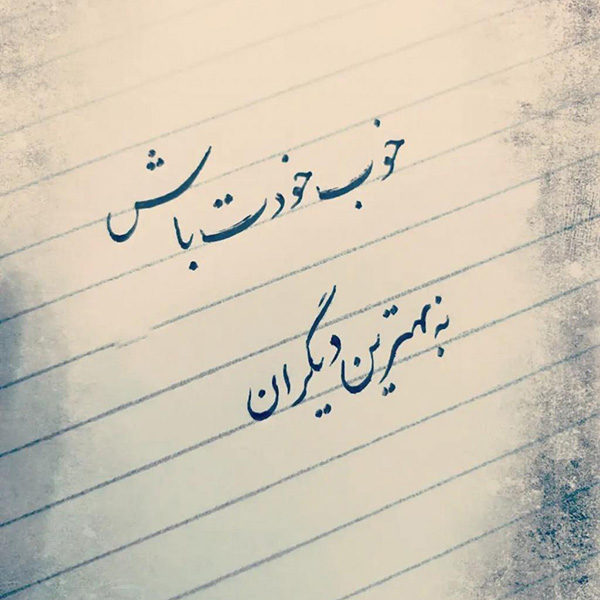 خوب خودت باش
نه بهترین دیگران